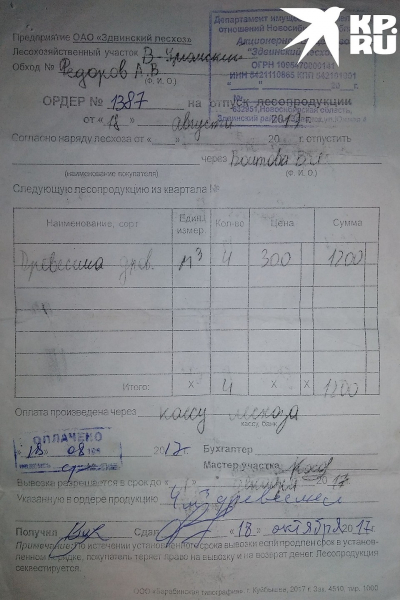 KP.RU
Предприятие ОАО «Здвинский лесхоз»
Лесохозяйственный участок
Обход № Федоров А.В.
(Ф. И. О.)
Департамент имущес
отношений Новосибирской о
Акционерное
"Здвинский лесхоз"
ОГРН
ИНН 5421110863 КПП 542101001
ОРДЕР № 1387 на отпуск лесопродукции
от «18» августа 2017 г.
Согласно наряду лесхоза от «___» 20 г. отпустить
через
(наименование покупателя) (Ф. И. О.)
Следующую лесопродукцию из квартала №
Наименование, сорт Един. измер. Кол-во Цена Сумма
Древесина дров. м³ 4 300 1200
Итого: х 4 х х 1200
Оплата произведена через кассу лесхоза
кассу, банк
ОПЛАЧЕНО
«18» 08 2017г. Бухгалтер
Мастер участка
Вывозка разрешается в срок до « » 2017
Указанную в ордере продукцию 4 м³ древесин
Получил Сдал «18» октября 2017 г.
Примечание: По истечении установленного срока вывозки если продлен срок в установ-
ленном порядке, покупатель теряет право на вывозку и не возврат денег. Лесопродукция
секвестируется.
ООО «Барабинская типография» г. Куйбышев, 2017 г. Зак. 4510, тир. 1000